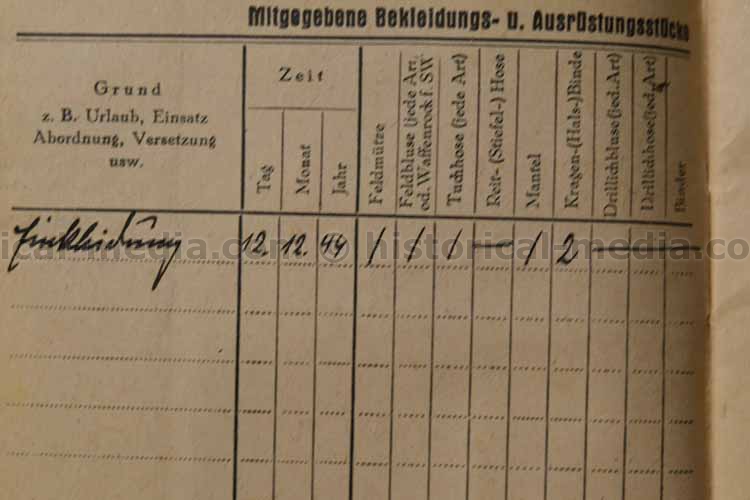 Mitgegebene Bekleidungs- u. Ausrüstungsstücke
Grund
z. B. Urlaub, Einsatz
Abordnung, Versetzung
usw.
Zeit
Tag
Monat
Jahr
Feldmütze
Feldbluse (jede Art,
od. Waffenrock f. SW
Tuchhose (jede Art)
Reit- (Stiefel-) Hose
Mantel
Kragen-(Hals-)Binde
Drillichbluse (jed. Art)
Drillichhose (jed. Art)
Binder
Einkleidung 12. 12. 44 1 1 1 — 1 2 — — —
ical-media.com © historical-media.com